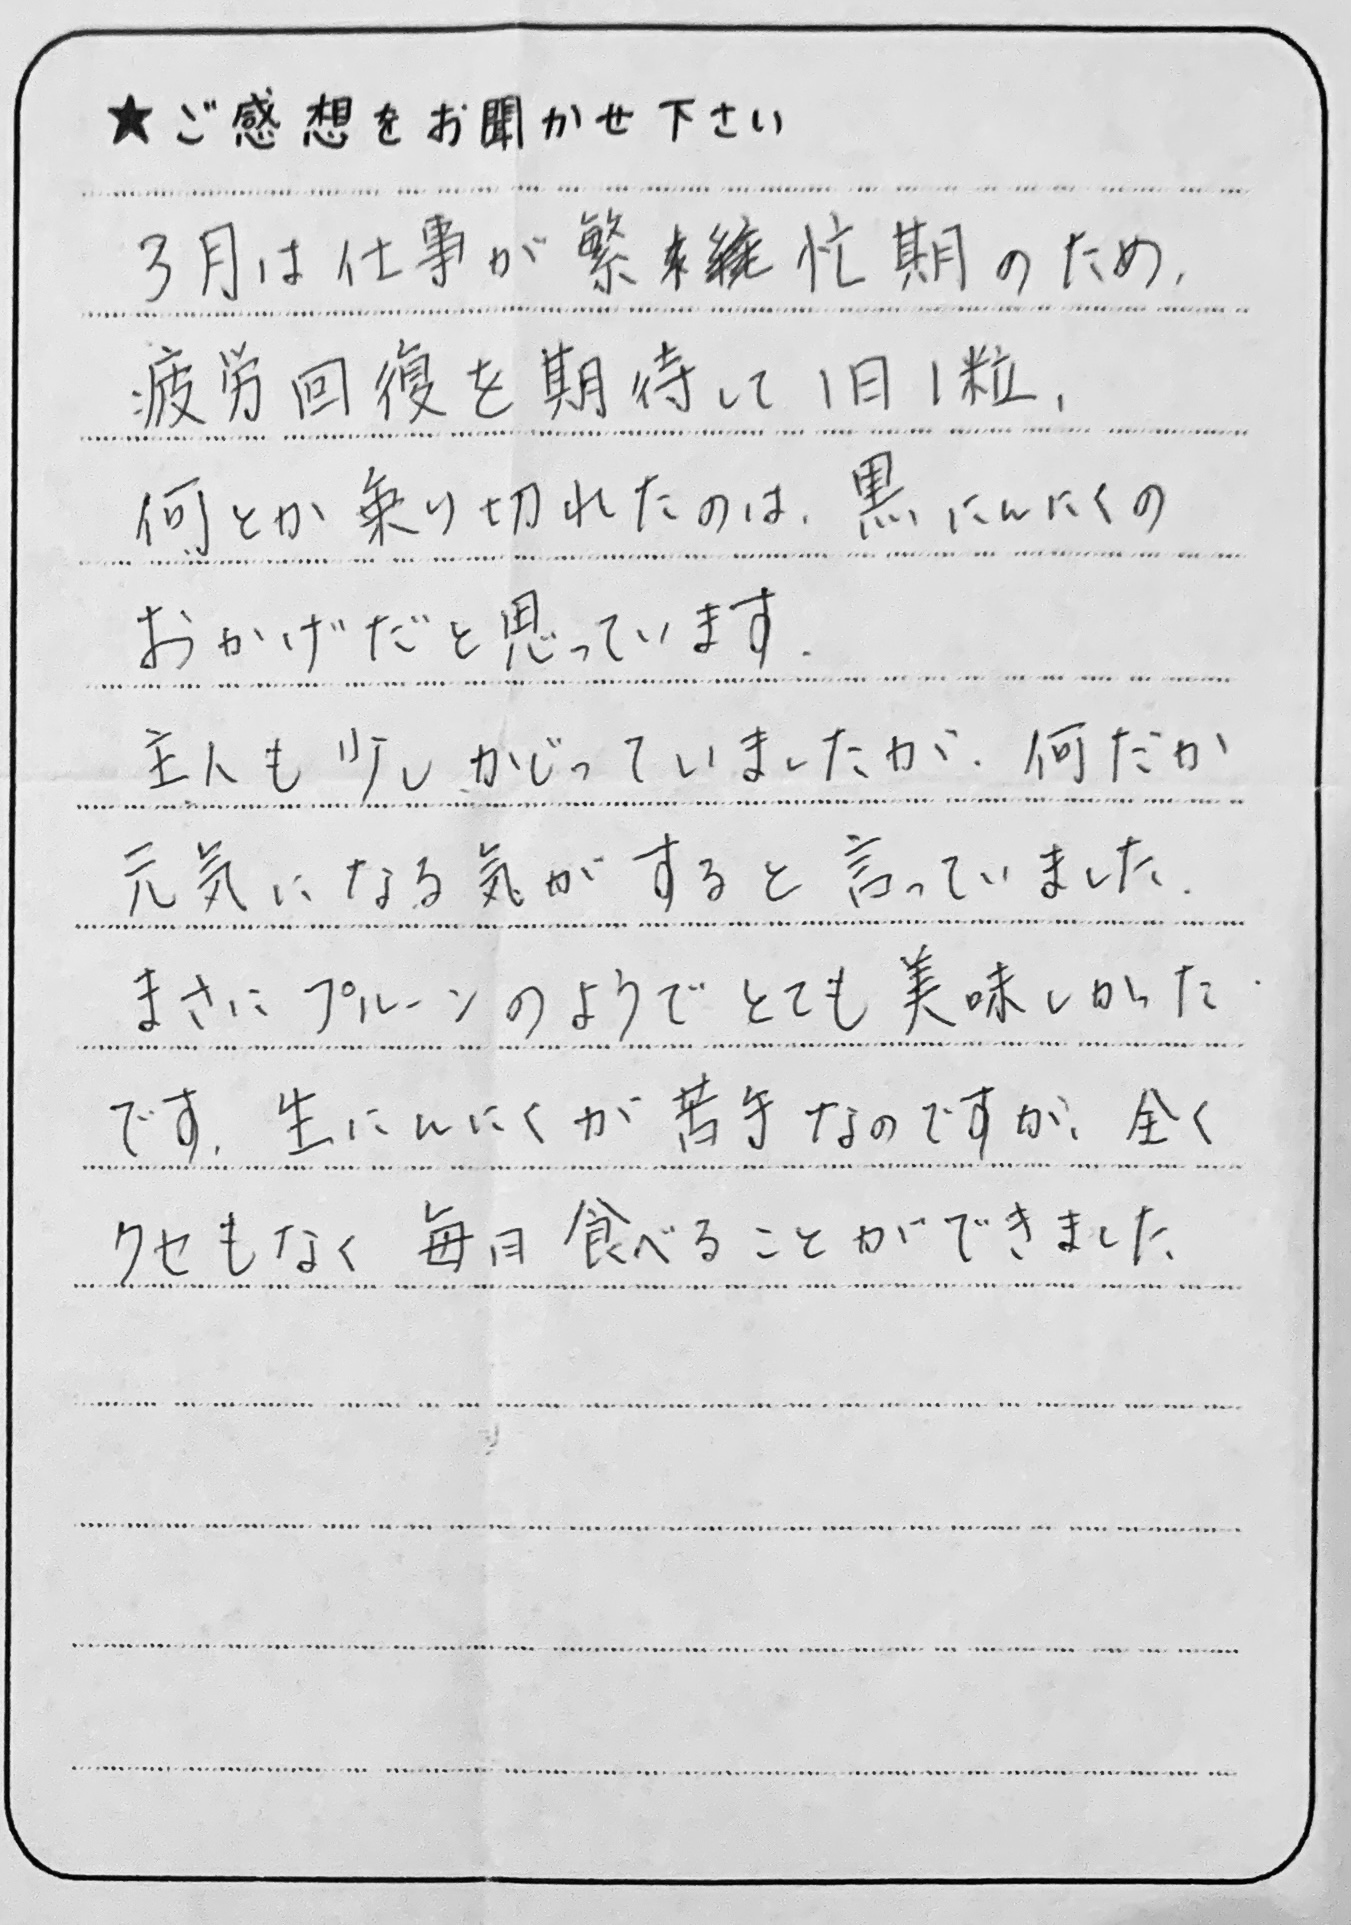 ★ご感想をお聞かせ下さい
3月は仕事が繁忙期のため、
疲労回復を期待して1日1粒、
何とか乗り切れたのは、黒にんにくの
おかげだと思っています。
主人も少しかじっていましたが、何だか
元気になる気がすると言っていました。
まさにプルーンのようでとても美味しかった
です。生にんにくが苦手なのですが、全く
クセもなく毎日食べることができました。